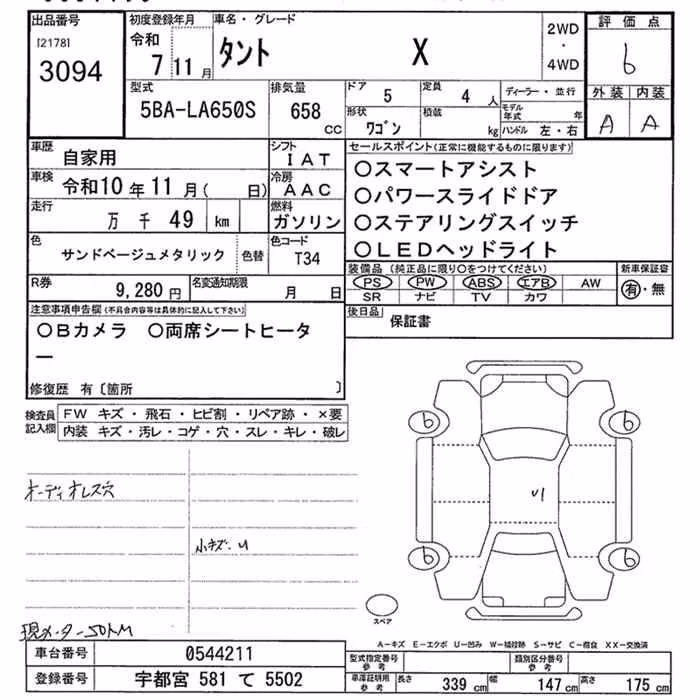 出品番号
[2178]
3094
初度登録年月
令和
7 11 月
車名・グレード
タント X
2WD
・
4WD
評価点
6
外装 内装
A A
型式
5BA-LA650S
排気量
658
CC
ドア
5
定員
4 人
形状
ワゴン
積載
kg
ディーラー・並行
モデル年式 年
ハンドル 左・右
車歴
自家用
シフト
IAT
車検
令和10年11月( 日)
冷房
AAC
走行
万 千 49 km
燃料
ガソリン
色
サンドベージュメタリック
色替
色コード
T34
R券
9,280 円
名変通知期限
月 日
セールスポイント(正常に機能するものに限ります)
○スマートアシスト
○パワースライドドア
○ステアリングスイッチ
○LEDヘッドライト
装備品(純正品に限り○をつけてください)
PS PW ABS エアB AW
SR ナビ TV カワ
新車保証書
有・無
後日品
保証書
注意事項申告欄(不具合内容等は具体的に記入して下さい)
○Bカメラ ○両席シートヒータ
ー
修復歴 有〔箇所 〕
検査員記入欄
FW キズ・飛石・ヒビ割・リペア跡・×要
内装 キズ・汚レ・コゲ・穴・スレ・キレ・破レ
オーディオレス穴
小キズ.U
現メーター50KM
6 6
U1
6 6
スペア
A-キズ E-エクボ U-凹み W-補修跡 S-サビ C-腐食 XX-交換済
車台番号
0544211
登録番号
宇都宮 581 て 5502
型式指定番号
参考
類別区分番号
参考
車庫証明用
参考
長さ 339 cm
幅 147 cm
高さ 175 cm